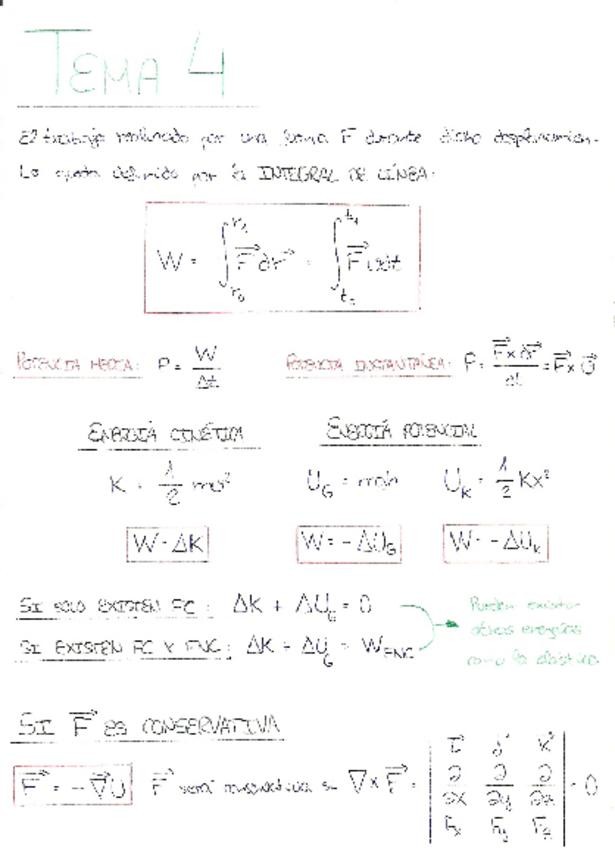 TEMA 4
El trabajo realizado por una fuerza F durante dicho desplazamien-
to queda definido por la INTEGRAL DE LÍNEA.
W = ∫_{r₀}^{r₁} F⃗ dr⃗ = ∫_{t₀}^{t₁} F⃗ v dt
POTENCIA MEDIA: P = W/Δt POTENCIA INSTANTÁNEA: P = F⃗ x dr⃗/dt = F⃗ x v⃗
ENERGÍA CINÉTICA ENERGÍA POTENCIAL
K = 1/2 mv² U_G = mgh U_K = 1/2 Kx²
W = ΔK W = -ΔU_G W = -ΔU_K
SI SOLO EXISTEN FC: ΔK + ΔU_G = 0
SI EXISTEN FC Y FNC: ΔK + ΔU_G = W_FNC
Pueden existir
otras energías
como la elástica
SI F⃗ ES CONSERVATIVA
F⃗ = -∇⃗U F⃗ será conservativa si ∇ x F⃗ = | i⃗ j⃗ k⃗ ; ∂/∂x ∂/∂y ∂/∂z ; Fx Fy Fz | = 0